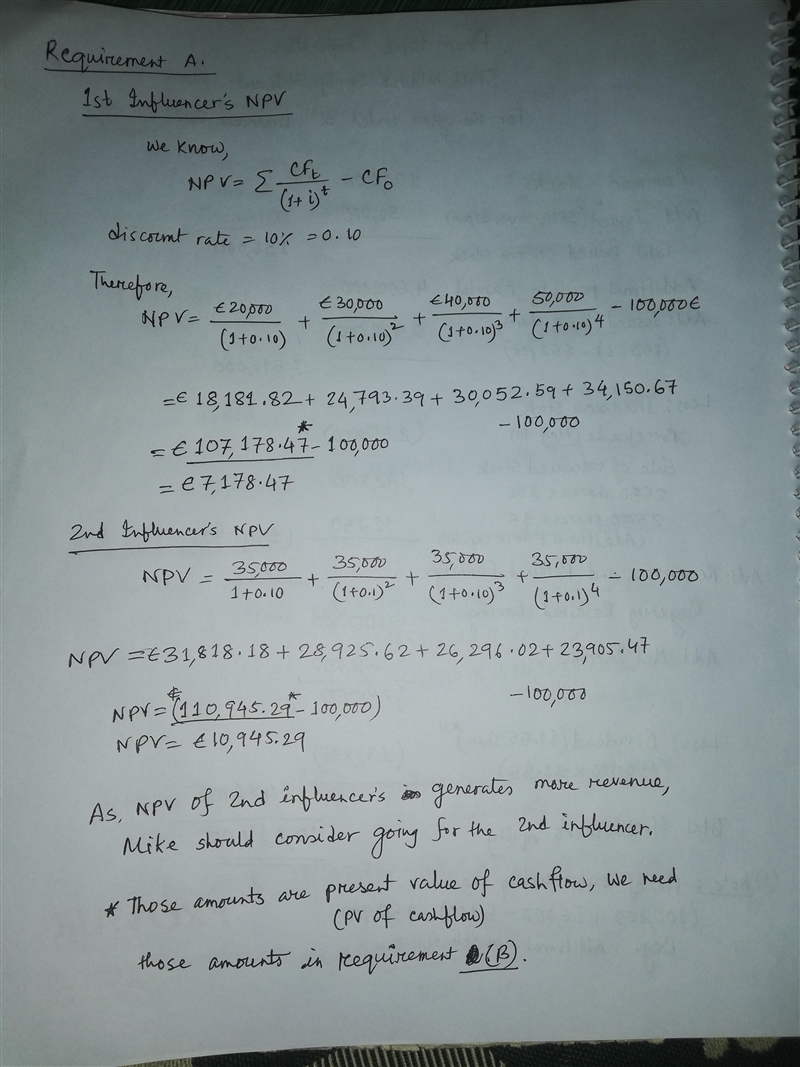 Requirement A.
1st Influencer's NPV
We know,
NPV = Σ CFt/(1+i)^t - CF0
discount rate = 10% = 0.10
Therefore,
NPV = €20,000/(1+0.10) + €30,000/(1+0.10)^2 + €40,000/(1+0.10)^3 + 50,000/(1+0.10)^4 - 100,000€
= € 18,181.82 + 24,793.39 + 30,052.59 + 34,150.67
- 100,000
= € 107,178.47* - 100,000
= €7,178.47
2nd Influencer's NPV
NPV = 35,000/1+0.10 + 35,000/(1+0.1)^2 + 35,000/(1+0.10)^3 + 35,000/(1+0.1)^4 - 100,000
NPV = €31,818.18 + 28,925.62 + 26,296.02 + 23,905.47
- 100,000
NPV = €(110,945.29* - 100,000)
NPV = €10,945.29
As, NPV of 2nd influencer's generates more revenue,
Mike should consider going for the 2nd influencer.
* Those amounts are present value of cashflow, We need
(PV of cashflow)
those amounts in requirement (B).